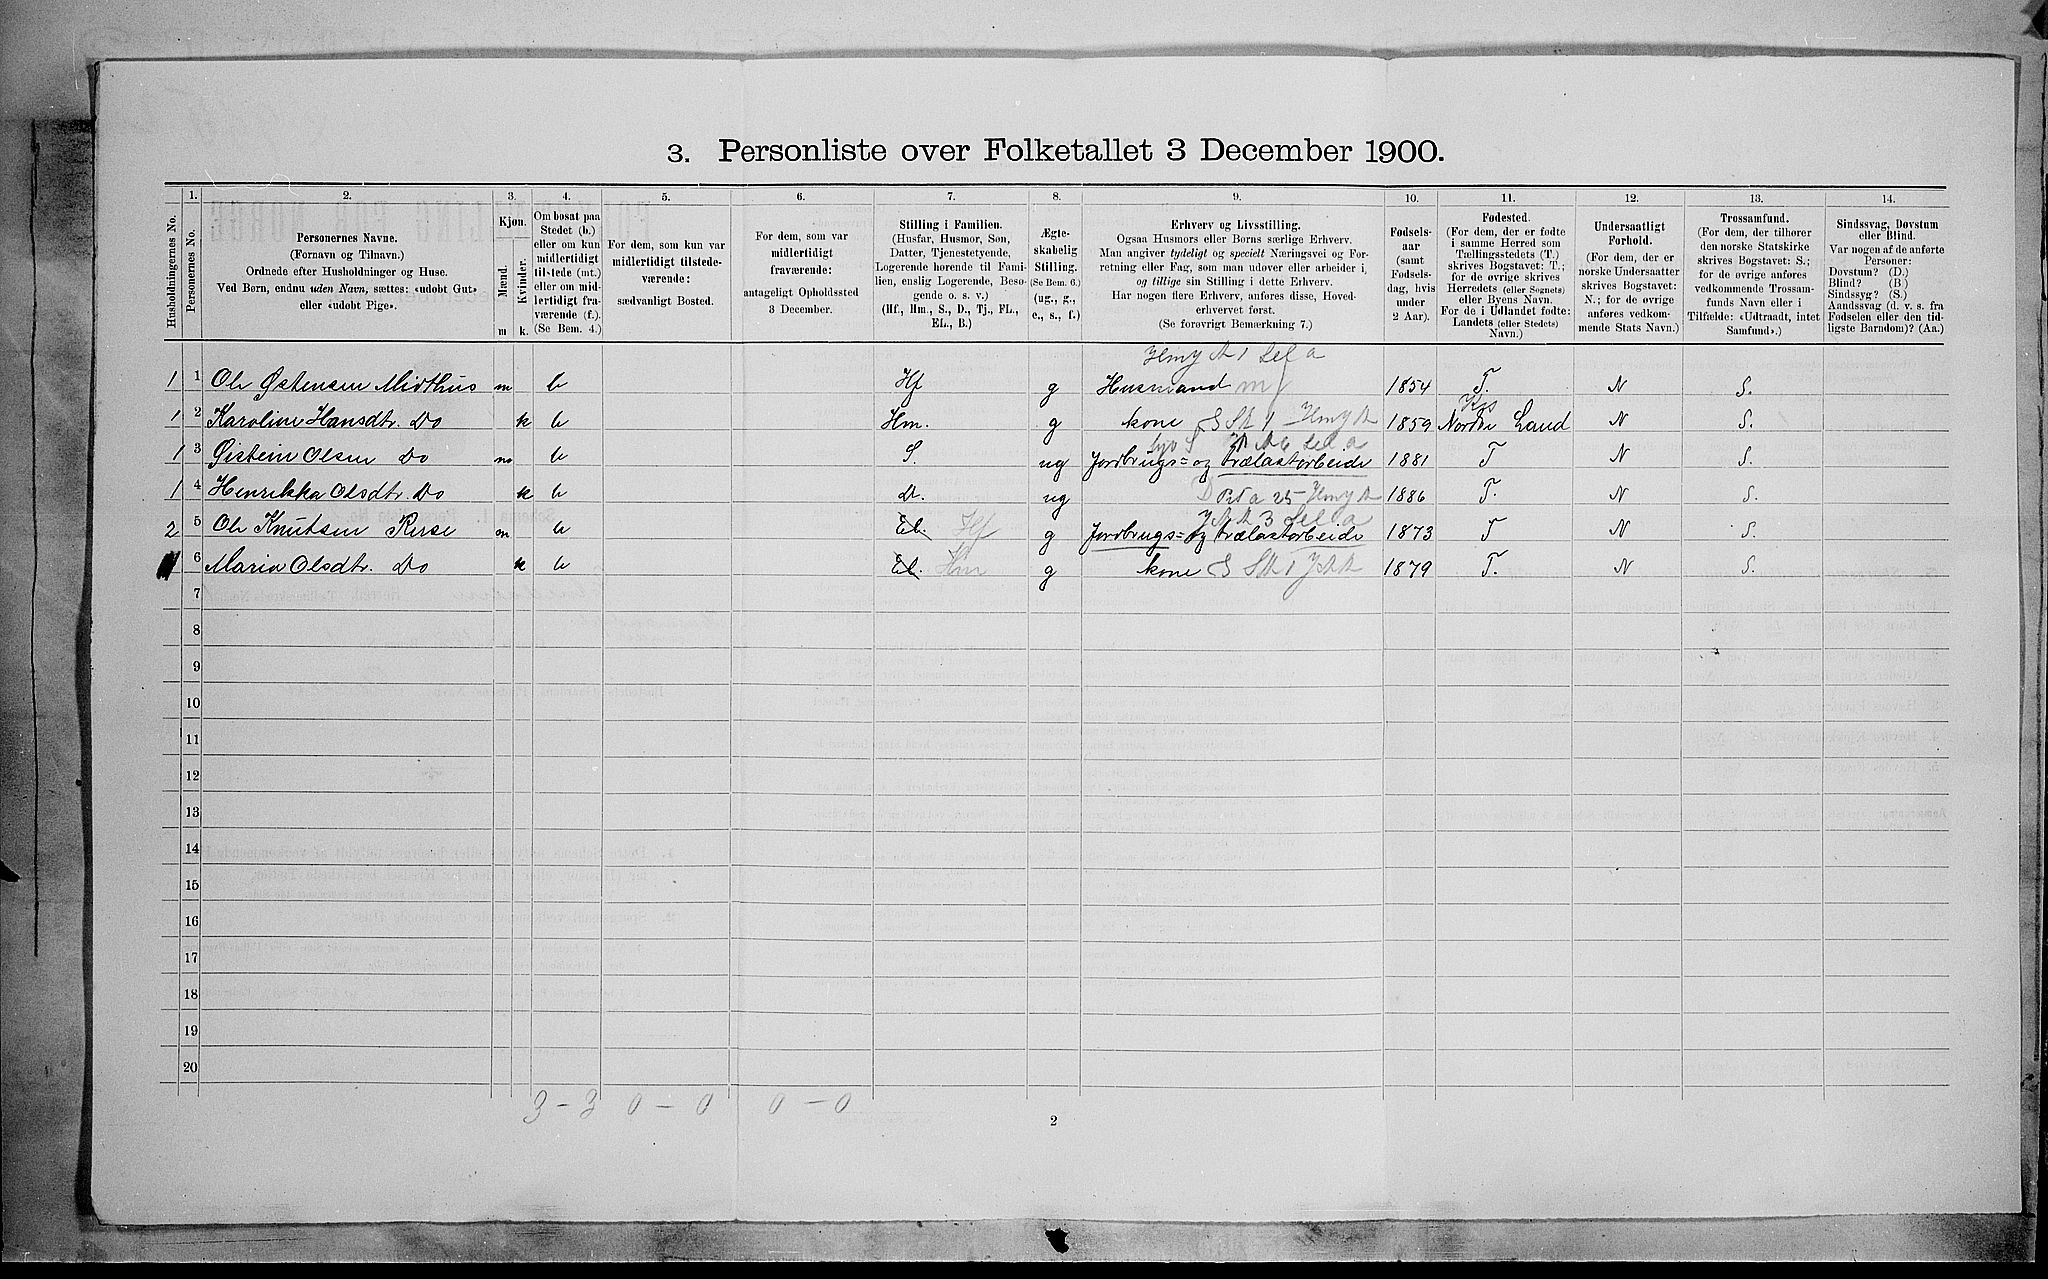 3. Personliste over Folketallet 3 December 1900.
1. 2. 3. 4. 5. 6. 7. 8. 9. 10. 11. 12. 13. 14.
Husholdningernes No.
Personernes No.
Personernes Navne.
(Fornavn og Tilnavn.)
Ordnede efter Husholdninger og Huse.
Ved Børn, endnu uden Navn, sættes: «udøbt Gut»
eller «udøbt Pige».
Kjøn.
Mænd.
Kvinder.
m k.
Om bosat paa
Stedet (b.)
eller om kun
midlertidigt
tilstede (mt.)
eller om mid-
lertidigt fra-
værende (f.).
(Se Bem. 4.)
For dem, som kun var
midlertidigt tilstede-
værende:
sædvanligt Bosted.
For dem, som var
midlertidigt
fraværende:
antageligt Opholdssted
3 December.
Stilling i Familien.
(Husfar, Husmor, Søn,
Datter, Tjenestetyende,
Logerende hørende til Fami-
lien, enslig Logerende, Beso-
gende o. s. v.)
(Hf., Hm., S., D., Tj., FL.,
EL., B.)
Ægte-
skabelig
Stilling.
(Se Bem. 6.)
(ug., g.,
e., s., f.)
Erhverv og Livsstilling.
Ogsaa Husmors eller Børns særlige Erhverv.
Man angiver tydeligt og specielt Næringsvei og For-
retning eller Fag, som man udøver eller arbeider i,
og tillige sin Stilling i dette Erhverv.
Har nogen flere Erhverv, anføres disse, Hoved-
erhvervet først.
(Se forøvrigt Bemærkning 7.)
Fødsels-
aar
(samt
Fødsels-
dag, hvis
under
2 Aar).
Fødested.
(For dem, der er fødte
i samme Herred som
Tællingsstedets (T.)
skrives Bogstavet: T.;
for de øvrige skrives
Herredets (eller Sognets)
eller Byens Navn.
For de i Udlandet fødte:
Landets (eller Stedets)
Navn.)
Undersaatligt
Forhold.
(For dem, der er
norske Undersaatter
skrives Bogstavet:
N.; for de øvrige
anføres vedkom-
mende Stats Navn.)
Trossamfund.
(For dem, der tilhører
den norske Statskirke
skrives Bogstavet: S.;
for de øvrige anføres
vedkommende Trossam-
funds Navn eller i
Tilfælde: «Udtraadt, intet
Samfund».)
Sindssvag, Døvstum
eller Blind.
Var nogen af de anførte
Personer:
Døvstum? (D.)
Blind? (B.)
Sindssyg? (S.)
Aandssvag (d. v. s. fra
Fødselen eller den tid-
ligste Barndom)? (Aa.)
1 1 Ole Østensen Midthus m b Hf g Husmand 1854 T. N S.
1 2 Karoline Hansdtr. Do k b Hm. g kone 1859 Nordre Land N S.
1 3 Øistein Olsen Do m b S. ug Jordbrugs= og Trælastarbeide 1881 T N S.
1 4 Henrikka Olsdtr. Do k b D. ug 1886 T. N S.
2 5 Ole Knutsen Ruse m b El. Hf g Jordbrugs= og Trælastarbeide 1873 T N S.
6 Maria Olsdtr. Do k b El. Hm g kone 1879 T. N S.
7
8
9
10
11
12
13
14
15
16
17
18
19
20
3 – 3 0 – 0 0 – 0
2